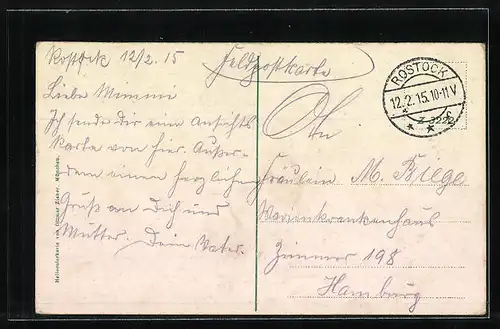 Rostock 12/2. 15
Liebe Mimmi
Ich sende Dir eine Ansichts
Karte von hier. Außer-
dem einen herzlichen
Gruß an Dich und
Mutter. Dein Vater.
Feldpostkarte
An
Fräulein M. Biege
Marienkrankenhaus
Zimmer 198
Hamburg
ROSTOCK
12.2.15.10-11V
* *
Z 3222
München.